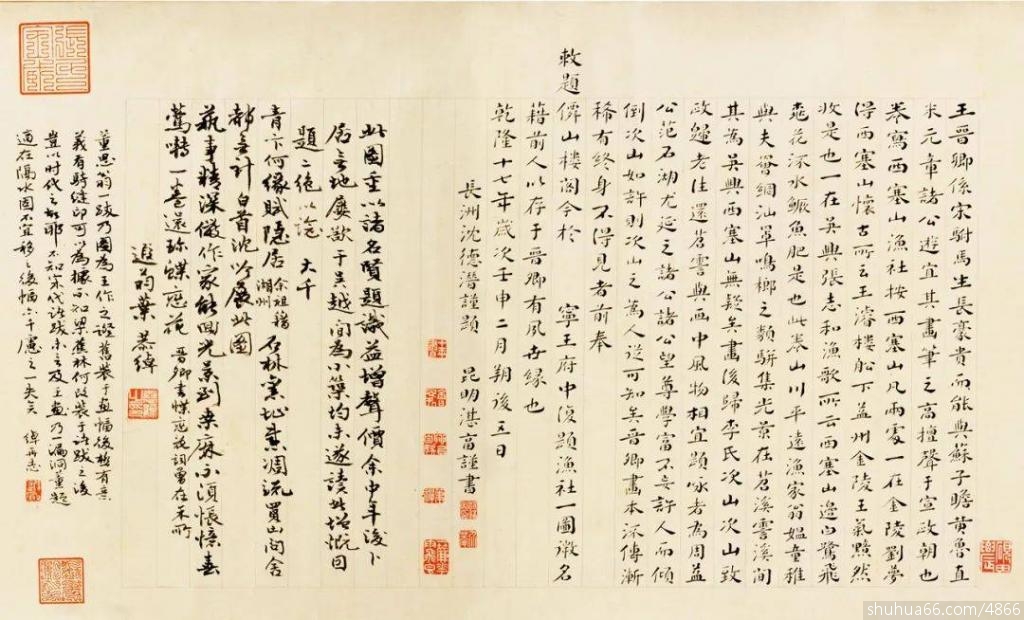 王晉卿係宋駙馬生長豪貴而能與蘇子瞻黄魯直
米元章諸公遊宜其畫筆之高擅聲于宣政朝也
卷寫西塞山漁社按西塞山凡兩處一在金陵劉夢
得西塞山懷古所云王濬樓船下益州金陵王氣黯然
收是也一在吳興張志和漁歌所云西塞山邊白鷺飛
桃花流水鱖魚肥是也此卷山川平遠漁家翁媼童稚
與夫罾綢汕罩鳴榔之類駢集光景在苕溪霅溪間
其為吳興西塞山無疑矣畫後歸李氏次山次山致
政歸老往還苕霅與画中風物相宜題咏者為周益
公范石湖尤延之諸公諸公望尊學富不妄許人而傾
倒次山如許則次山之為人從可知矣晉卿畫本流傳漸
稀有終身不得見者前奉
敕題僊山樓閣今於 寧王府中復題漁社一圖徽名
籍前人以存于晉卿有夙世緣也
乾隆十七年歲次壬申二月朔後三日
長洲沈德潛謹題 昆明湛富謹書
此圖重以諸名賢題識益增聲價余中年後卜
居無地屢欲于吳越間為小築均未遂讀此增慨因
題二絕以 大千
青卞何緣賦隱居 余祖籍湖州 石林定址未湮流買山問舍
都無計白首沈吟展此圖
藝事精深儆作家能回光景到桑麻不須悵憶春
鶯囀一卷還珍蝶戀花 晉卿書蝶戀花詞曾在余所
遐翁葉恭綽
董思翁跋乃圖為王作之證舊裝于畫幅後極有意
義有騎縫印可為據不知梁蕉林何改裝于諸跋之後
豈以時代之故耶不知宋代諸跋未言及王畫乃一漏洞董題
適在隔水固不宜移之後幅亦千慮之一失云 綽再志
shuhua66.com/4866